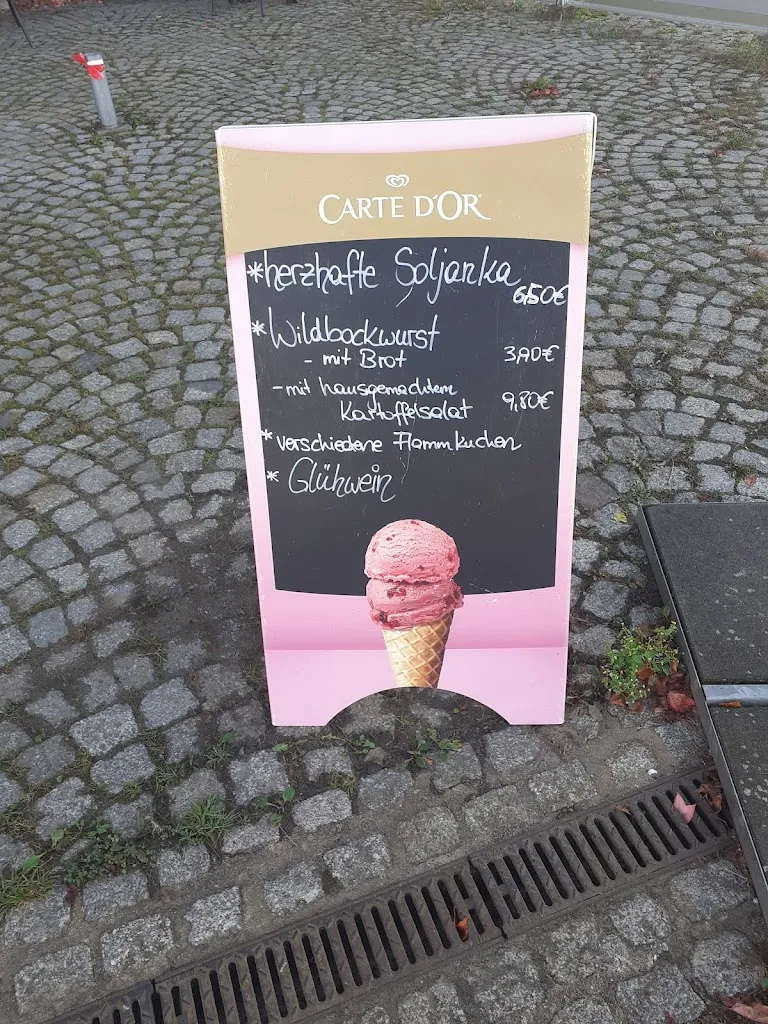 CARTE D'OR
*herzhafte Soljanka
6,50€
*Wildbockwurst
- mit Brot 3,90€
- mit hausgemachtem
Kartoffelsalat 9,80€
*verschiedene Flammkuchen
* Glühwein